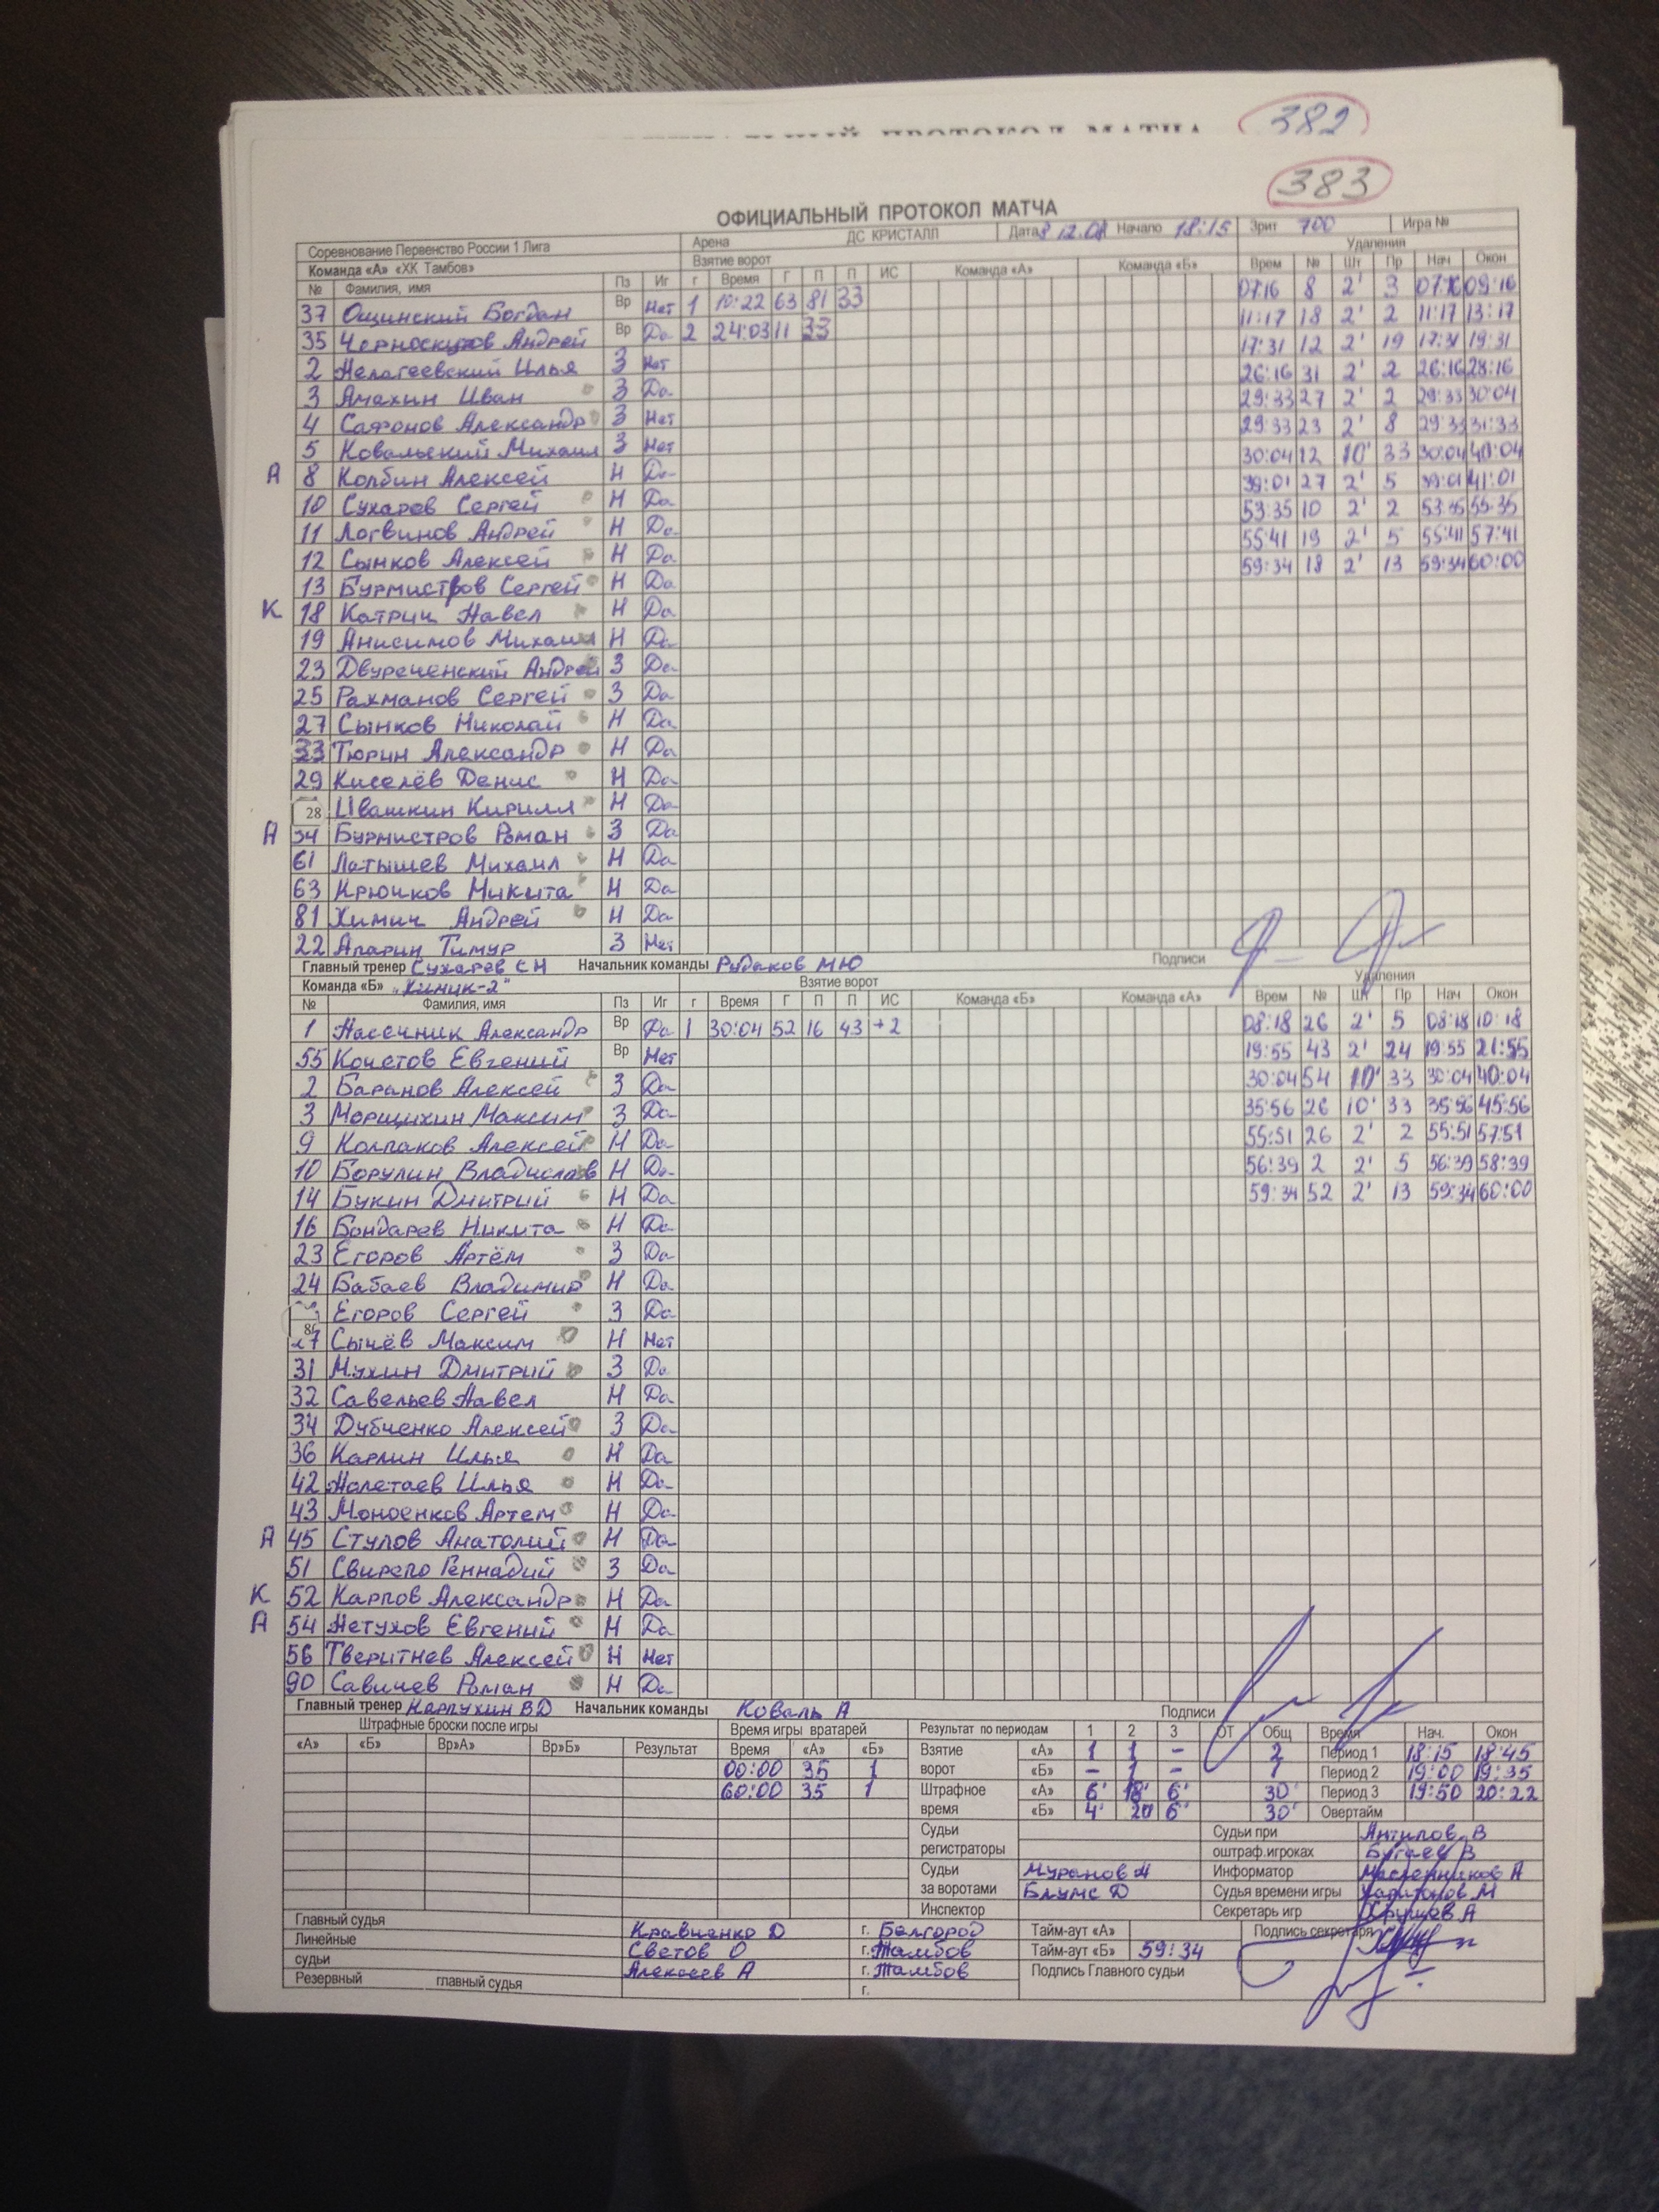 382
383
ОФИЦИАЛЬНЫЙ ПРОТОКОЛ МАТЧА
Соревнование Первенство России 1 Лига Арена ДС КРИСТАЛЛ Дата 8.12.08 Начало 18:15 Зрит 700 Игра №
Команда «А» «ХК Тамбов» Взятие ворот Удаления
№ Фамилия, имя Пз Иг г Время Г П П ИС Команда «А» Команда «Б» Врем № Шт Пр Нач Окон
37 Ощинский Богдан Вр Нет 1 10:22 63 81 33 07:16 8 2' 3 07:16 09:16
35 Андрей Вр Да 2 24:03 11 33 11:17 18 2' 2 11:17 13:17
2 Пелагеевский Илья З Нет 17:31 12 2' 19 17:31 19:31
3 Амахин Иван З Да 26:16 31 2' 2 26:16 28:16
4 Сафонов Александр З Нет 29:33 27 2' 2 29:33 30:04
5 Ковальский Михаил З Нет 29:33 23 2' 8 29:33 31:33
А 8 Колбин Алексей Н Да 30:04 12 10' 33 30:04 40:04
10 Сухарев Сергей Н Да 39:01 27 2' 5 39:01 41:01
11 Логвинов Андрей Н Да 53:35 10 2' 2 53:35 55:35
12 Сынков Алексей Н Да 55:41 19 2' 5 55:41 57:41
13 Бурмистров Сергей Н Да 59:34 18 2' 13 59:34 60:00
К 18 Катрич Павел Н Да
19 Анисимов Михаил Н Да
23 Двуреченский Андрей З Да
25 Рахманов Сергей З Да
27 Сынков Николай Н Да
33 Тюрин Александр Н Да
29 Киселёв Денис Н Да
28 Ивашкин Кирилл Н Да
А 34 Бурмистров Роман З Да
61 Латышев Михаил Н Да
63 Крючков Никита Н Да
81 Химич Андрей Н Да
22 Апарин Тимур З Нет
Главный тренер Сухарев СН Начальник команды Рудаков МЮ Подписи
Команда «Б» "Химик-2" Взятие ворот Удаления
№ Фамилия, имя Пз Иг г Время Г П П ИС Команда «Б» Команда «А» Врем № Шт Пр Нач Окон
1 Пасечник Александр Вр Да 1 30:04 52 16 43 +2 08:18 26 2' 5 08:18 10:18
55 Кочетов Евгений Вр Нет 19:55 43 2' 24 19:55 21:55
2 Баранов Алексей З Да 30:04 54 10' 33 30:04 40:04
3 Морщихин Максим З Да 35:56 26 10' 33 35:56 45:56
9 Колпаков Алексей Н Да 55:51 26 2' 2 55:51 57:51
10 Борулин Владислав Н Да 56:39 2 2' 5 56:39 58:39
14 Букин Дмитрий Н Да 59:34 52 2' 13 59:34 60:00
16 Бондарев Никита Н Да
23 Егоров Артём З Да
24 Бабаев Владимир Н Да
Егоров Сергей З Да
27 Сычёв Максим Н Нет
31 Мухин Дмитрий З Да
32 Савельев Павел Н Да
34 Дубченко Алексей З Да
36 Карлин Илья Н Да
42 Полетаев Илья Н Да
43 Моноенков Артем Н Да
А 45 Стулов Анатолий Н Да
51 Свирепо Геннадий З Да
К 52 Карпов Александр Н Да
А 54 Петухов Евгений Н Да
56 Тверитнев Алексей Н Нет
90 Савичев Роман Н Да
Главный тренер Карпухин ВД Начальник команды Коваль А Подписи
Штрафные броски после игры Время игры вратарей Результат по периодам 1 2 3 ОТ Общ Время Нач. Окон
«А» «Б» Вр»А» Вр»Б» Результат Время «А» «Б» Взятие «А» 1 1 - 2 Период 1 18:15 18:45
00:00 35 1 ворот «Б» - 1 - 1 Период 2 19:00 19:35
60:00 35 1 Штрафное «А» 6' 18' 6' 30' Период 3 19:50 20:22
время «Б» 4' 20' 6' 30' Овертайм
Судьи Судьи при Антипов В
регистраторы оштраф.игроках Бугаев В
Судьи Муранов А Информатор Масленников А
за воротами Блумс Д Судья времени игры Харитонов М
Инспектор Секретарь игр Хрущев А
Главный судья Кравченко Д г. Белгород Тайм-аут «А» Подпись секретаря
Линейные Светов О г. Тамбов Тайм-аут «Б» 59:34
судьи Алексеев А г. Тамбов Подпись Главного судьи
Резервный главный судья г.